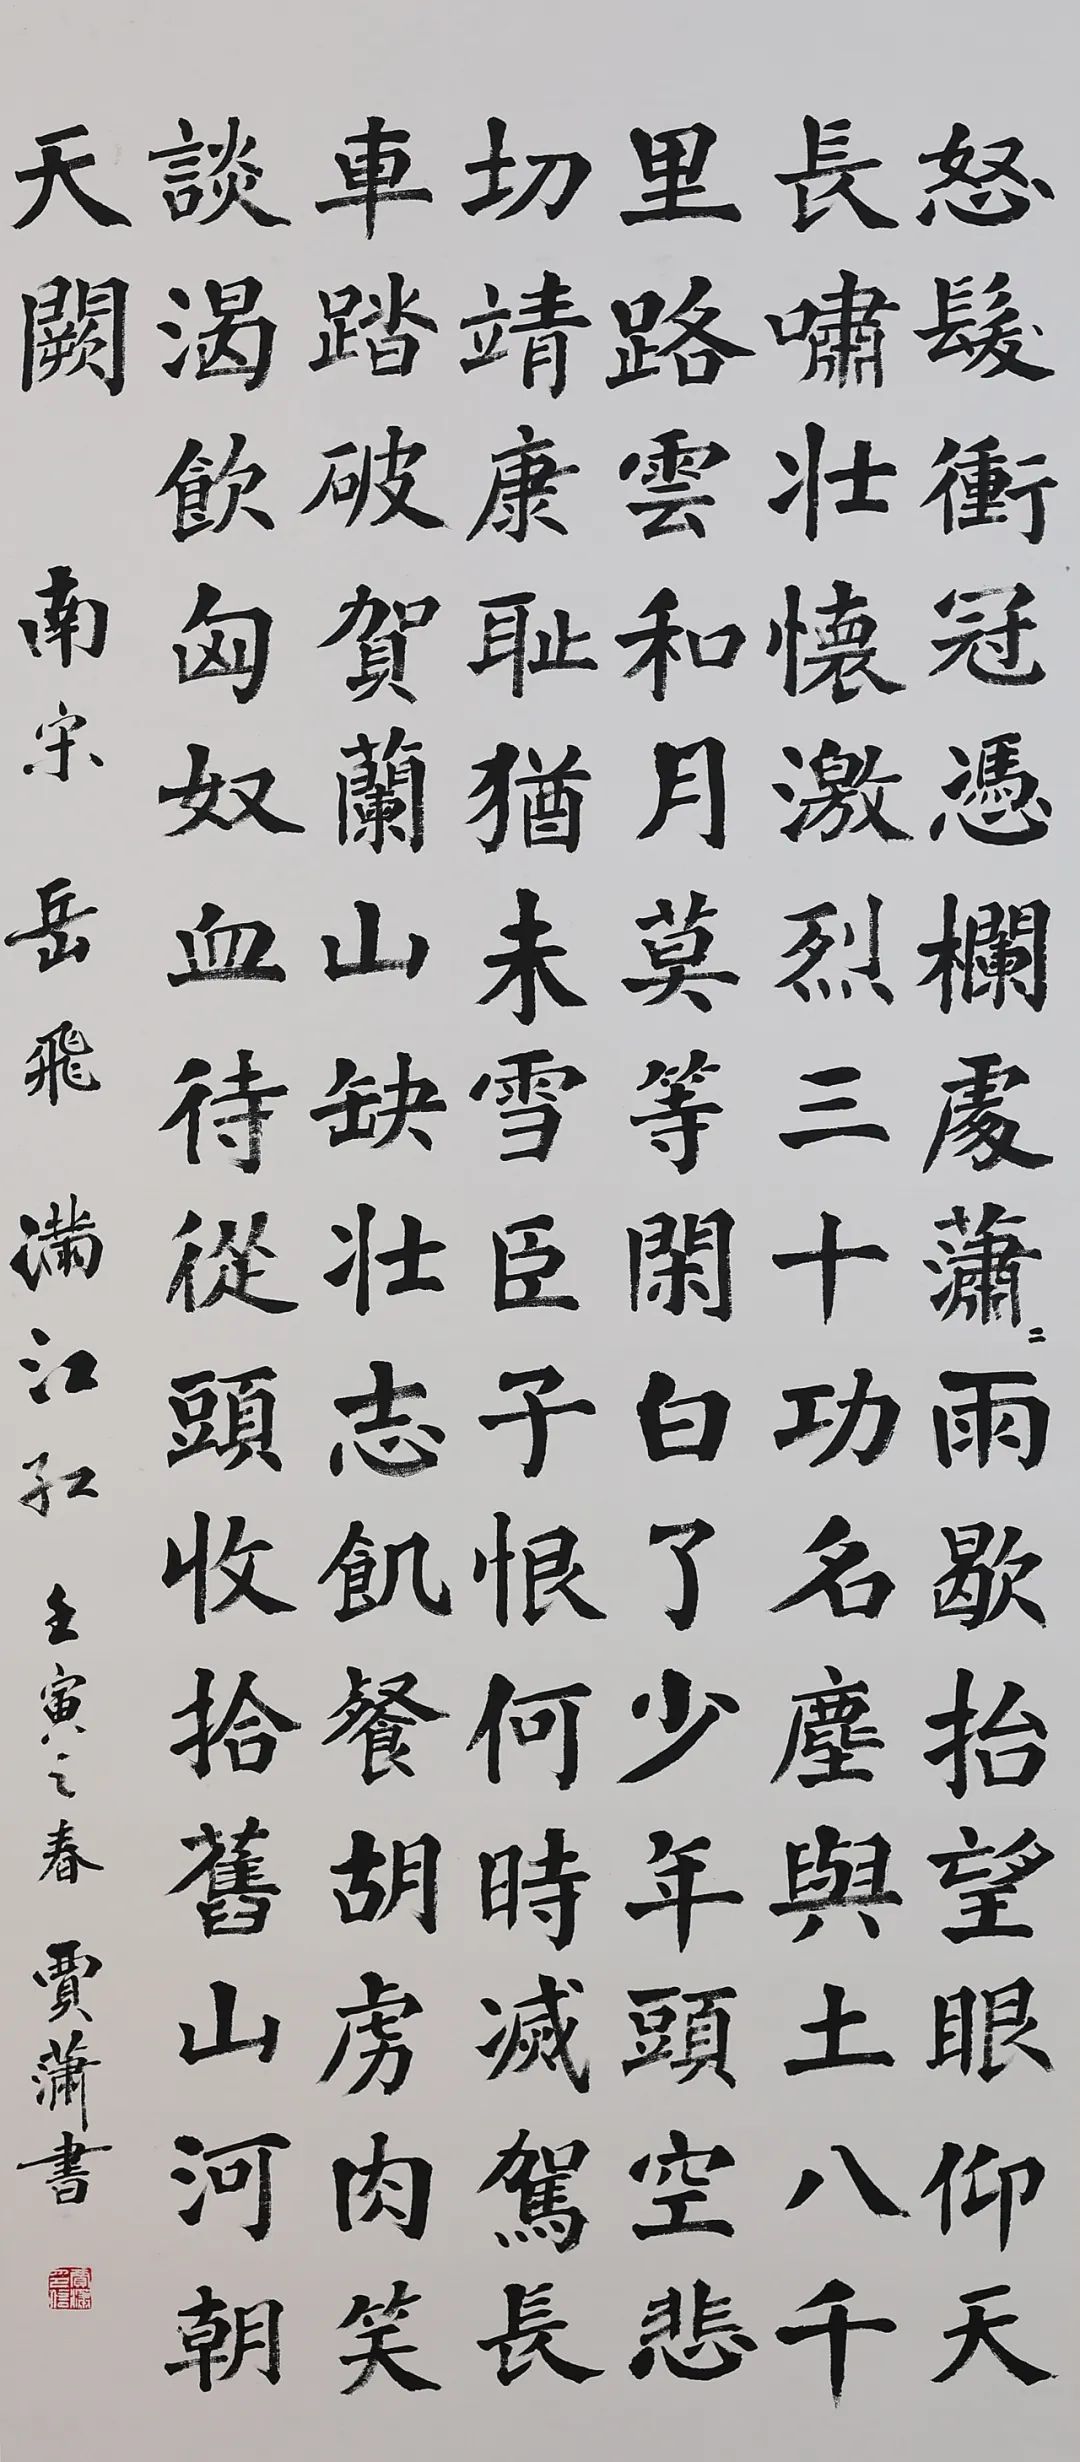 怒髮衝冠憑欄處蕭〻雨歇抬望眼仰天
長嘯壯懷激烈三十功名塵與土八千
里路雲和月莫等閑白了少年頭空悲
切靖康恥猶未雪臣子恨何時滅駕長
車踏破賀蘭山缺壯志飢餐胡虜肉笑
談渴飲匈奴血待從頭收拾舊山河朝
天闕 南宋 岳飛 滿江紅 壬寅之春 賈蕭書